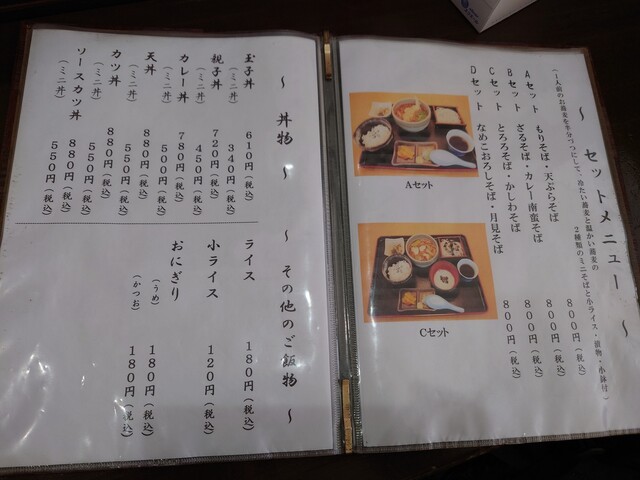 ～ セットメニュー ～
(1人前のお蕎麦を半分づつにして、冷たい蕎麦と温かい蕎麦の
2種類のミニそばと小ライス・漬物・小鉢付)
Aセット もりそば・天ぷらそば 800円(税込)
Bセット ざるそば・カレー南蛮そば 800円(税込)
Cセット とろろそば・かしわそば 800円(税込)
Dセット なめこおろしそば・月見そば 800円(税込)
Aセット
Cセット
～ 丼物 ～
玉子丼 610円(税込)
(ミニ丼) 340円(税込)
親子丼 720円(税込)
(ミニ丼) 450円(税込)
カレー丼 780円(税込)
(ミニ丼) 500円(税込)
天丼 880円(税込)
(ミニ丼) 550円(税込)
カツ丼 880円(税込)
(ミニ丼) 550円(税込)
ソースカツ丼 880円(税込)
(ミニ丼) 550円(税込)
～ その他のご飯物 ～
ライス 180円(税込)
小ライス 120円(税込)
おにぎり
(うめ) 180円(税込)
(かつお) 180円(税込)